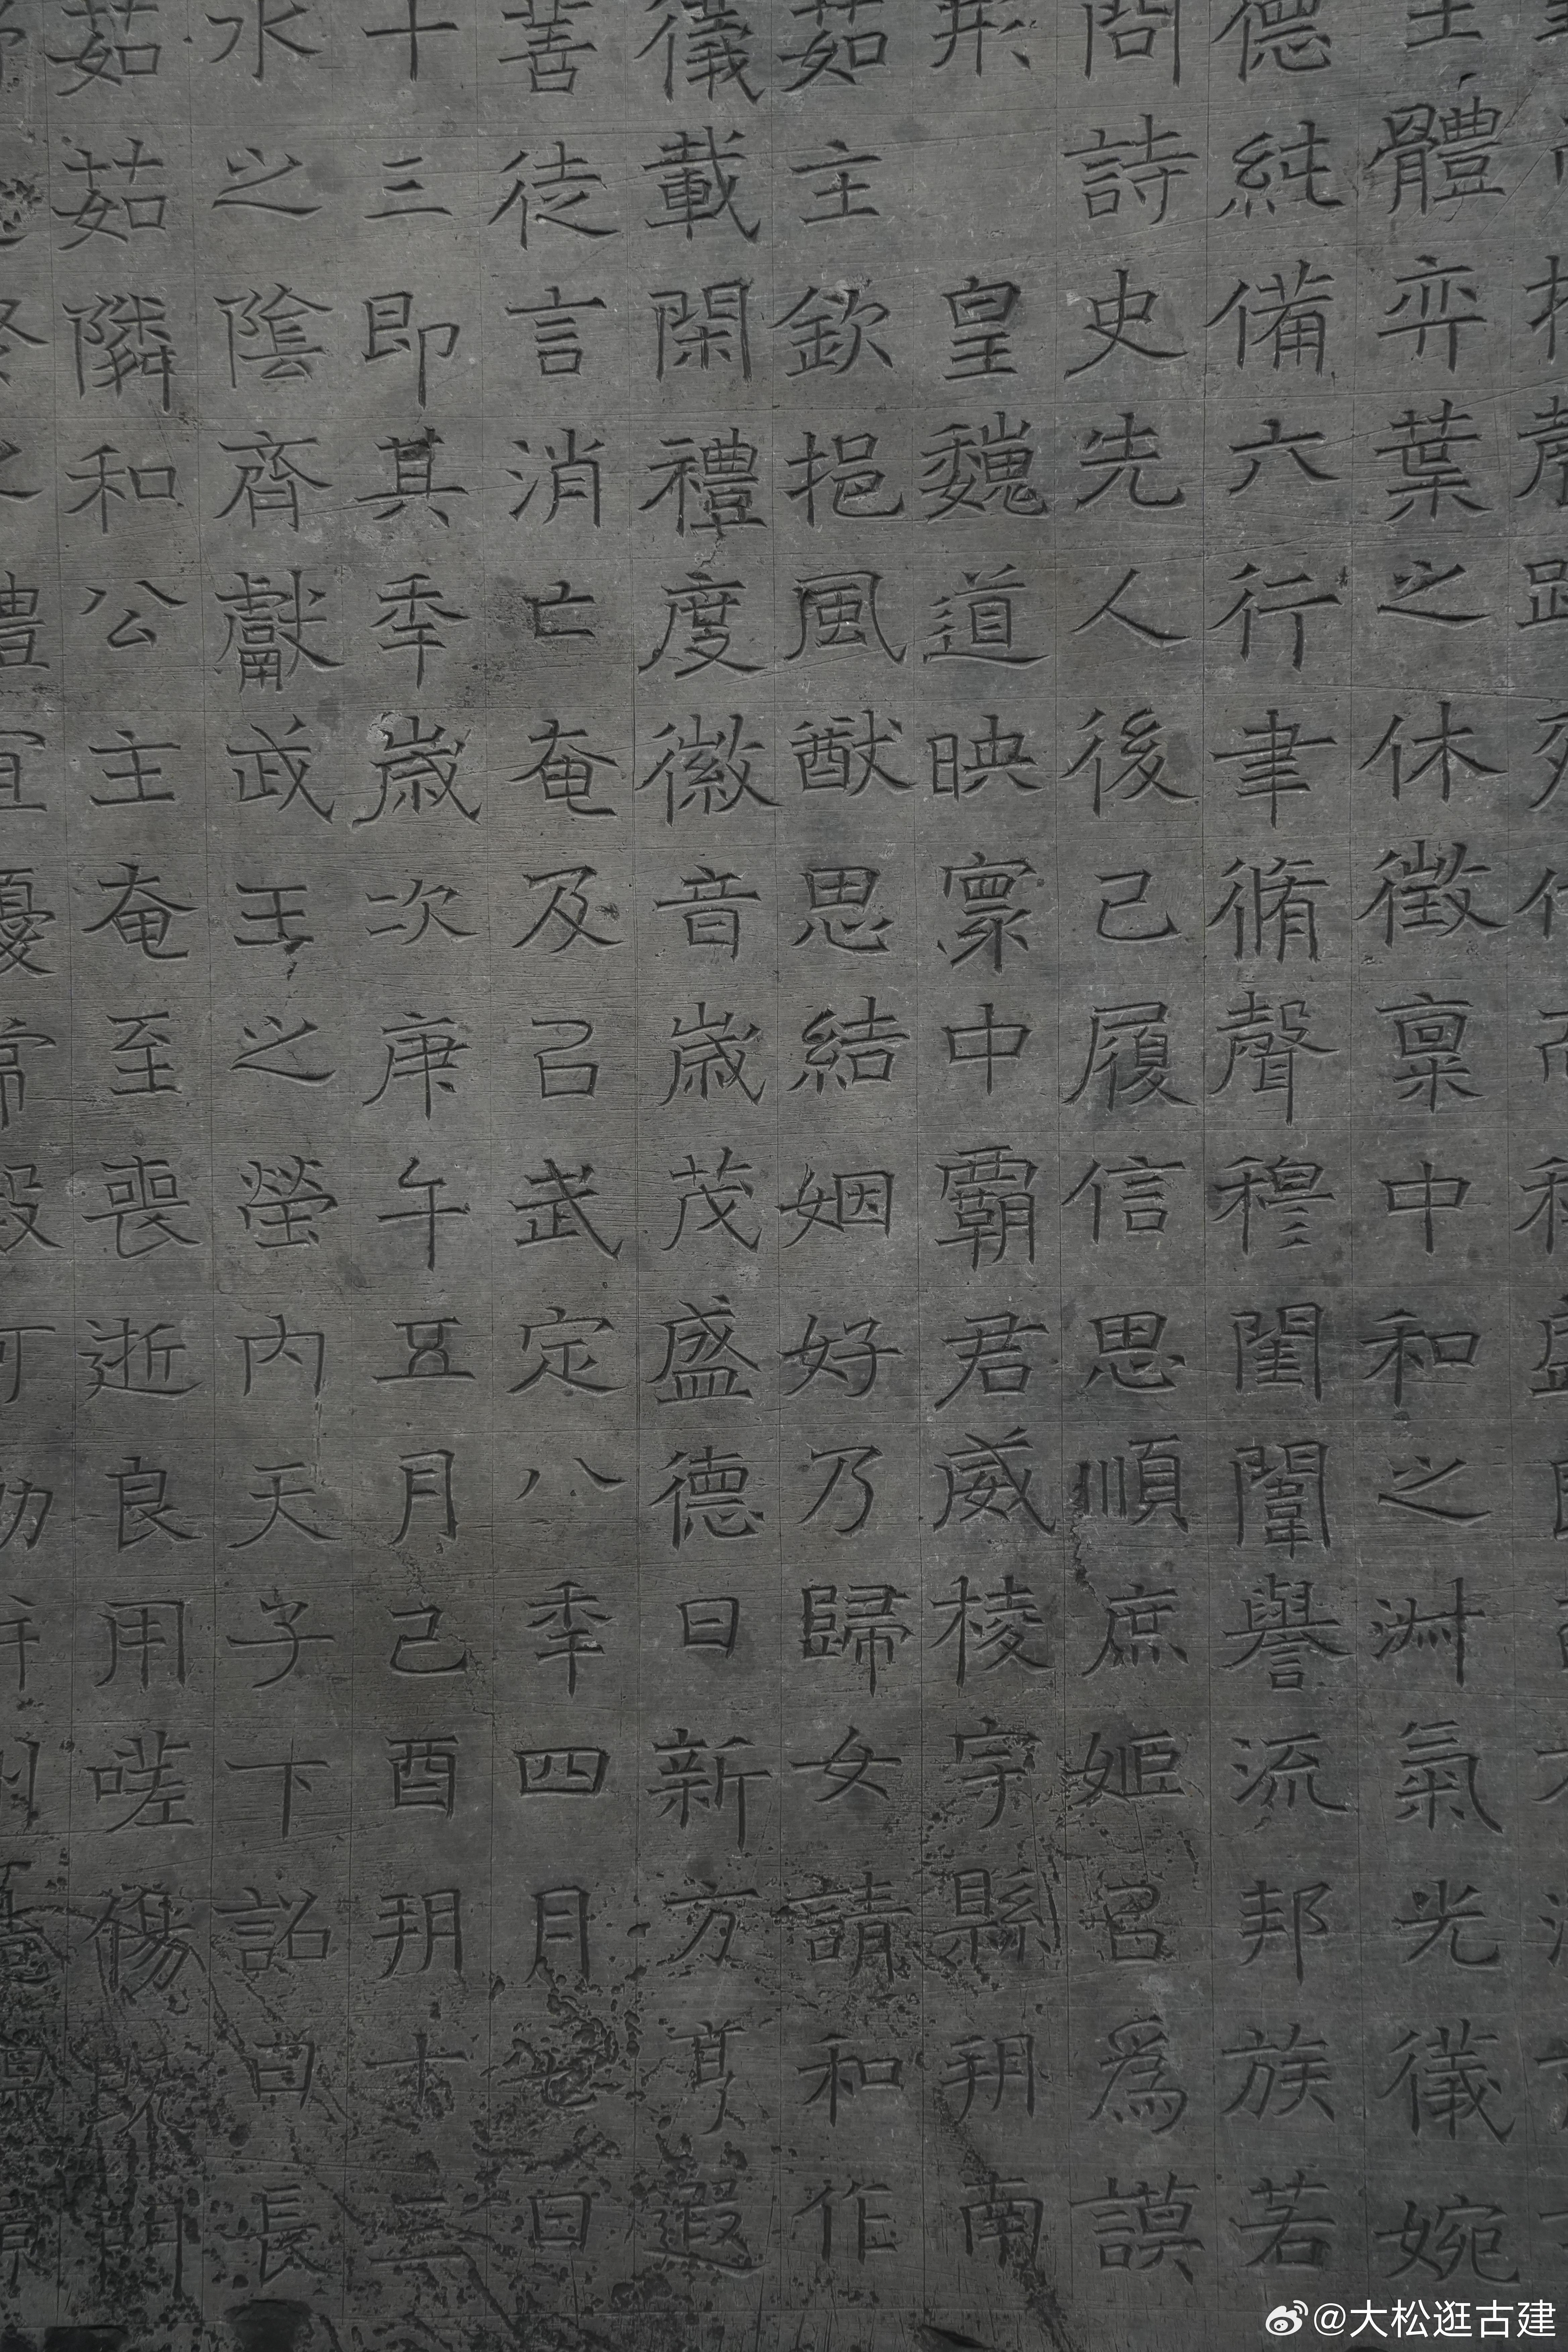 體弈葉之休徵稟中和之淑氣光儀婉
德純備六行聿脩聲穆閨闈譽流邦族若
問詩史先人後己履信思順庶姬㠯為謨
皇魏道映寰中霸君威棱宇縣朔南
茹主欽挹風猷思結姻好乃歸女請和作
儀載閑禮度徽音歲茂盛德日新方亨遐
善徒言消亡奄及㠯武定八秊四月七日
十三即其秊歲次庚午五月己酉朔十三
水之陰齊獻武王之塋內天子下詔曰長
茹茹隣和公主奄至喪逝良用嗟傷既門
@大松逛古建